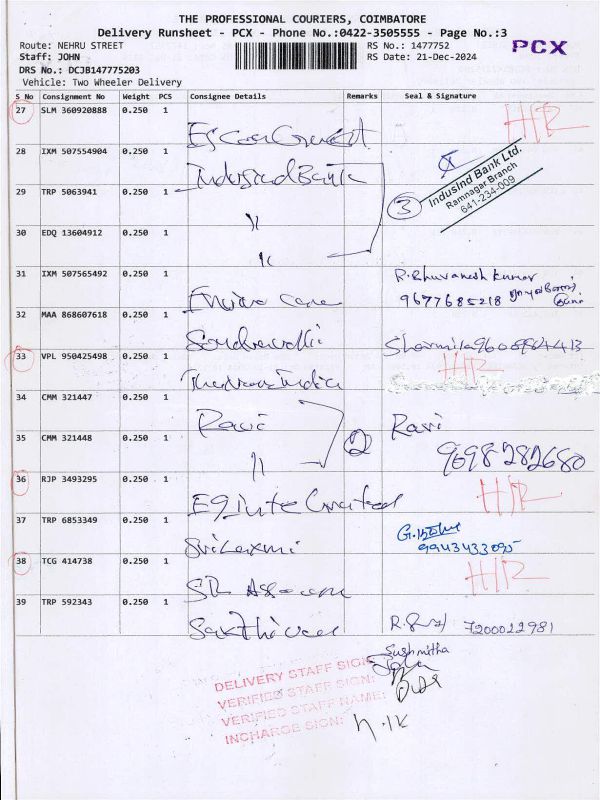 THE PROFESSIONAL COURIERS, COIMBATORE
Delivery Runsheet - PCX - Phone No.:0422-3505555 - Page No.:3
Route: NEHRU STREET RS No.: 1477752 PCX
Staff: JOHN RS Date: 21-Dec-2024
DRS No.: DCJB147775203
Vehicle: Two Wheeler Delivery
S No Consignment No Weight PCS Consignee Details Remarks Seal & Signature
27 SLM 360920888 0.250 1 H/R
28 IXM 507554904 0.250 1 IndusInd Bank
IndusInd Bank Ltd.
Ramnagar Branch
641-234-009
29 TRP 5063941 0.250 1 " 3
30 EDQ 13604912 0.250 1 "
31 IXM 507565492 0.250 1 R. Bhuvanesh kumar
9677685218
32 MAA 868607618 0.250 1 Sharmila
33 VPL 950425498 0.250 1 H/R
34 CMM 321447 0.250 1 Ravi Ravi
35 CMM 321448 0.250 1 " 2 9698282680
36 RJP 3493295 0.250 1 H/R
37 TRP 6853349 0.250 1 Sri Laxmi
9943433095
38 TCG 414738 0.250 1 H/R
39 TRP 592343 0.250 1 7200022981
Sushmitha
DELIVERY STAFF SIGN:
VERIFIED STAFF SIGN:
VERIFIED STAFF NAME:
INCHARGE SIGN: